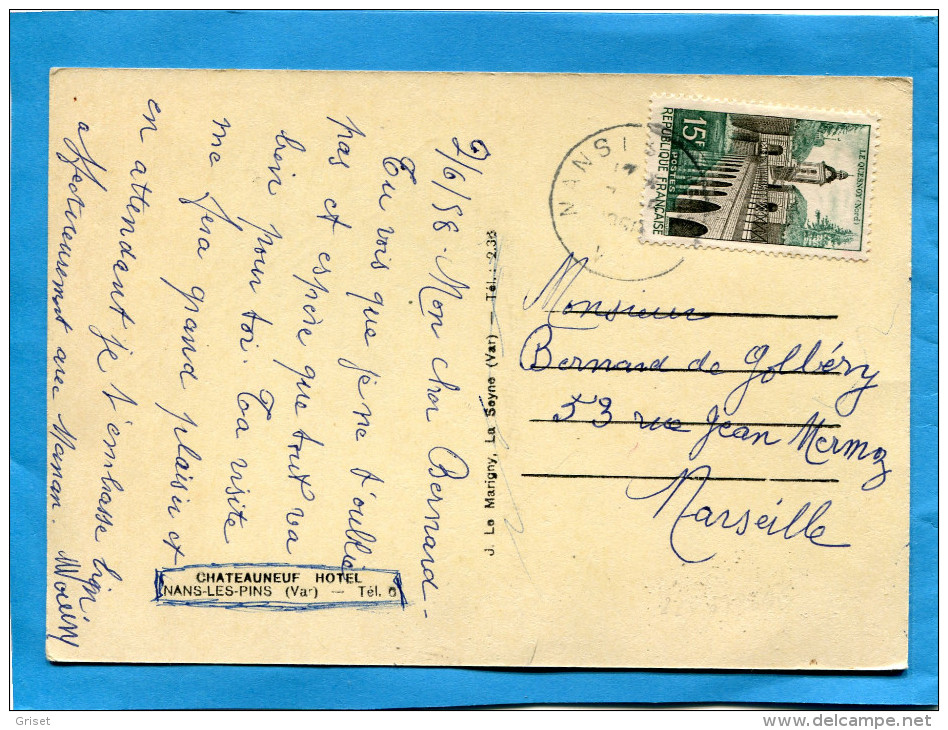 2/6/58. Mon cher Bernard -
Tu vois que je ne t'oublie
pas et espère que tout va
bien pour toi. Ta visite
me fera grand plaisir et
en attendant je t'embrasse
affectueusement avec Maman.
CHATEAUNEUF HOTEL
NANS-LES-PINS (Var) — Tél. 6
J. Le Marigny, La Seyne (Var) — Tél.: 2.38
NANS
15F
POSTES
REPUBLIQUE FRANÇAISE
LE QUESNOY (Nord)
Monsieur
Bernard de Golbéry
53 rue Jean Mermoz
Marseille
Griset
www.delcampe.net